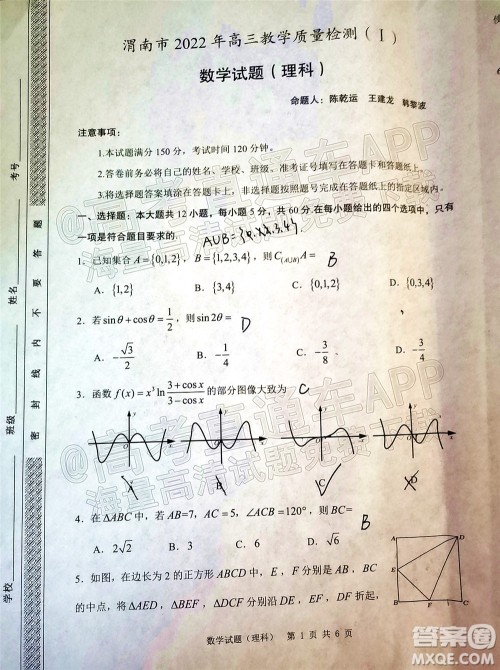 渭南市 2022 年高三教学质量检测（Ⅰ）
数学试题（理科）
命题人：陈乾运 王建龙 韩黎波
注意事项：
1.本试题满分 150 分，考试时间 120 分钟。
2.答卷前务必将自己的姓名、学校、班级、准考证号填写在答题卡和答题纸上。
3.将选择题答案填涂在答题卡上，非选择题按照题号完成在答题纸上的指定区域内。
一、选择题：本大题共 12 小题，每小题 5 分，共 60 分.在每小题给出的四个选项中，只有
一项是符合题目要求的.
1．已知集合 A={0,1,2}，B={1,2,3,4}，则 C(A∪B)A= B
A．{1,2} B．{3,4} C．{0,1,2} D．{0,3,4}
2．若 sinθ+cosθ=1/2，则 sin2θ= D
A．-√3/2 B．-1/4 C．-3/8 D．-3/4
3．函数 f(x)=x³ln(3+cosx)/(3-cosx) 的部分图像大致为 C
A B C D
4．在△ABC中，若 AB=7，AC=5，∠ACB=120°，则 BC= B
A．2√2 B．3 C．2√3
5．如图，在边长为 2 的正方形 ABCD 中，E，F 分别是 AB，BC
的中点，将△AED，△BEF，△DCF 分别沿 DE，EF，DF 折起，
A D E B F C
数学试题（理科） 第 1 页 共 6 页
考号
姓名
班级
学校
密 封 线 内 不 要 答 题
@高考直通车APP
海量高清试题免费下载
@高考直通车APP
海量高清试题免费下载
答案圈
MXQE.COM